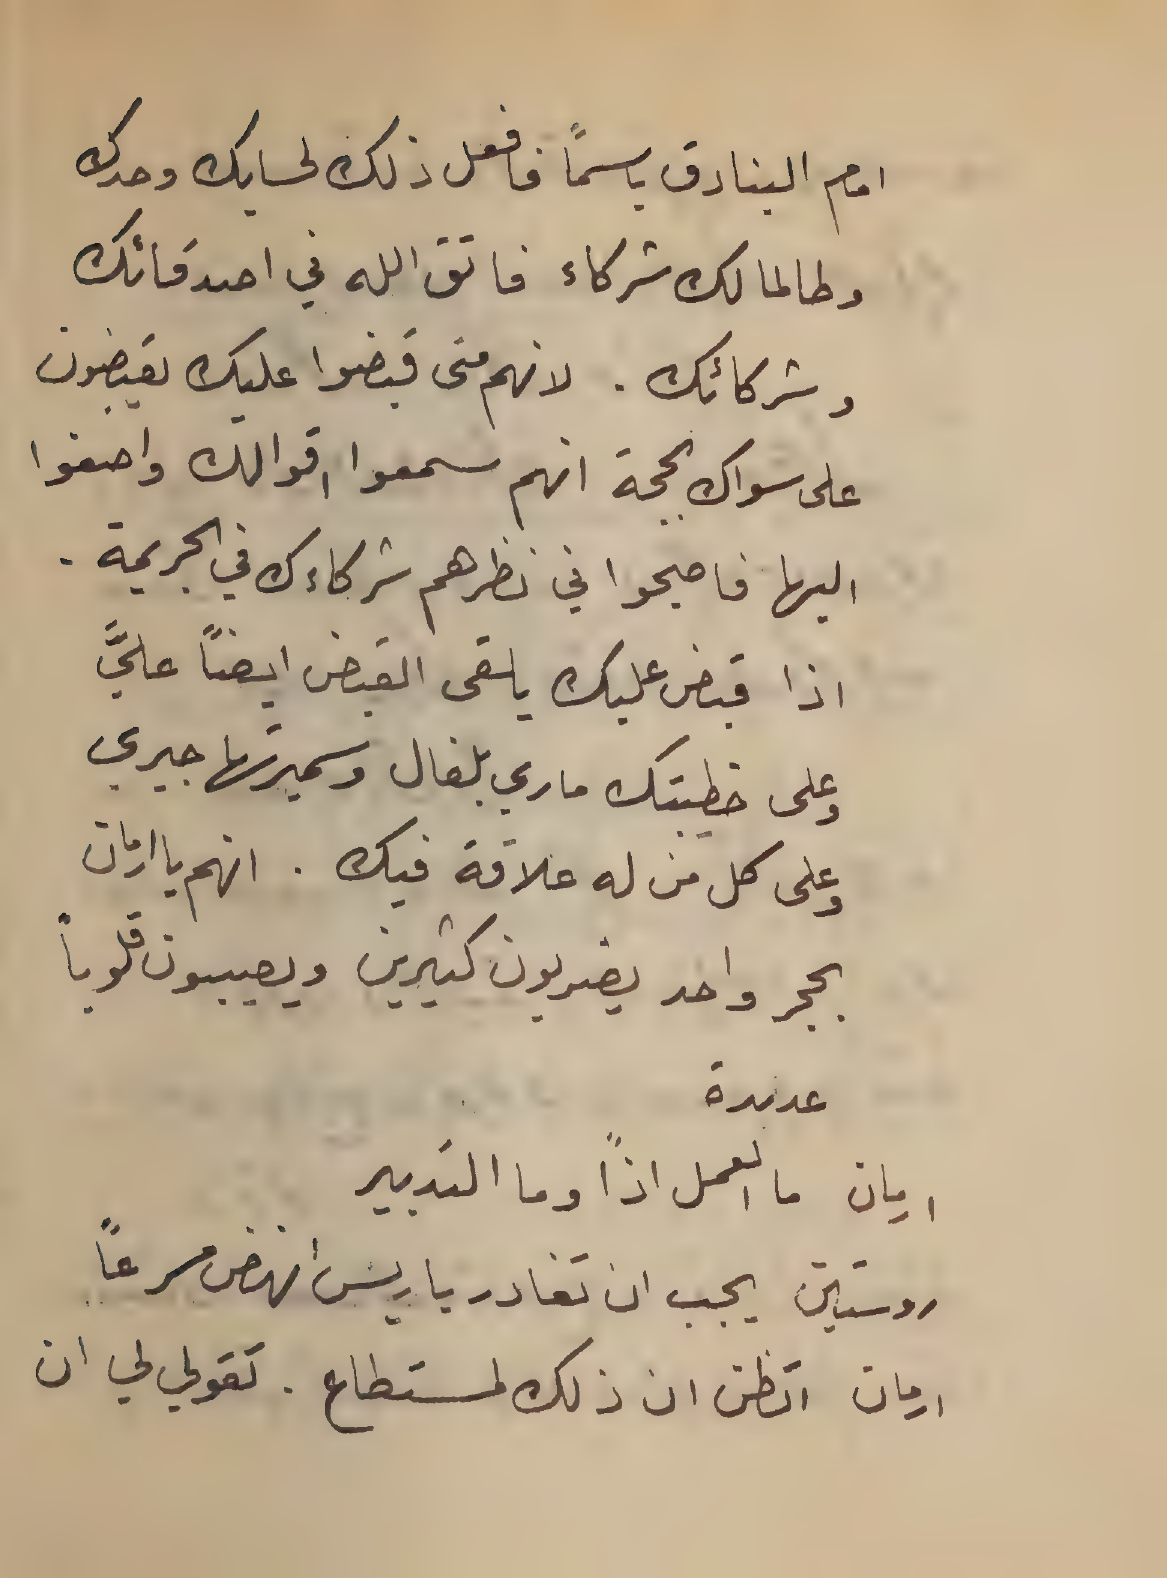 امام البنادق باسماً فافعل ذلك لحسابك وحدك
وطالما لك شركاء فاتق الله في اصدقائك
وشركائك . لانهم متى قبضوا عليك يقبضون
على سواك بحجة انهم سمعوا اقوالك واصغوا
اليها فاصبحوا في نظرهم شركاءك في الجريمة .
اذا قبض عليك يلقى القبض ايضاً عليَّ
وعلى خطيبتك ماري بلفال وسميرتها جيري
وعلى كل من له علاقة فيك . انهم يا ارمان
بحجر واحد يضربون كثيرين ويصيبون قلوباً
عديدة
ارمان ما العمل اذاً وما التدبير
روستيتن يجب ان تغادر باريس انهض مسرعاً
ارمان اتظن ان ذلك لمستطاع . تقولي لي ان